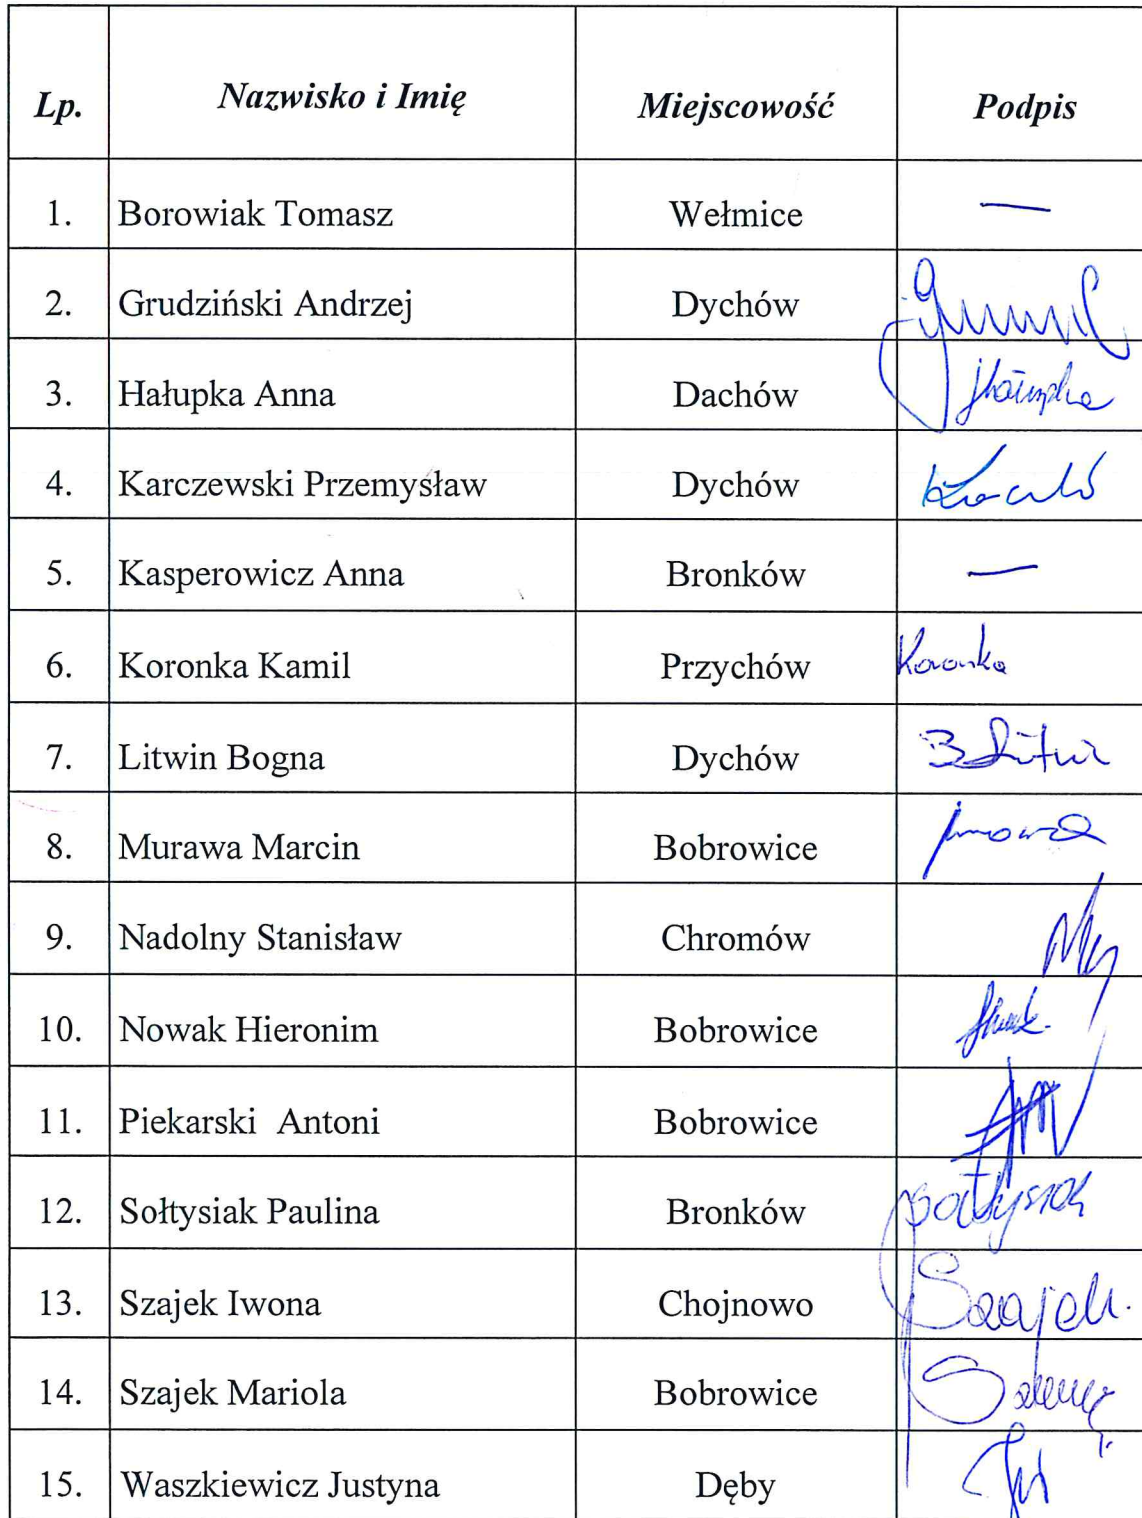 Lp. Nazwisko i Imię Miejscowość Podpis
1. Borowiak Tomasz Wełmice —
2. Grudziński Andrzej Dychów
3. Hałupka Anna Dachów
4. Karczewski Przemysław Dychów
5. Kasperowicz Anna Bronków —
6. Koronka Kamil Przychów Koronka
7. Litwin Bogna Dychów B Litwin
8. Murawa Marcin Bobrowice
9. Nadolny Stanisław Chromów
10. Nowak Hieronim Bobrowice
11. Piekarski Antoni Bobrowice
12. Sołtysiak Paulina Bronków Sołtysiak
13. Szajek Iwona Chojnowo Szajek
14. Szajek Mariola Bobrowice
15. Waszkiewicz Justyna Dęby